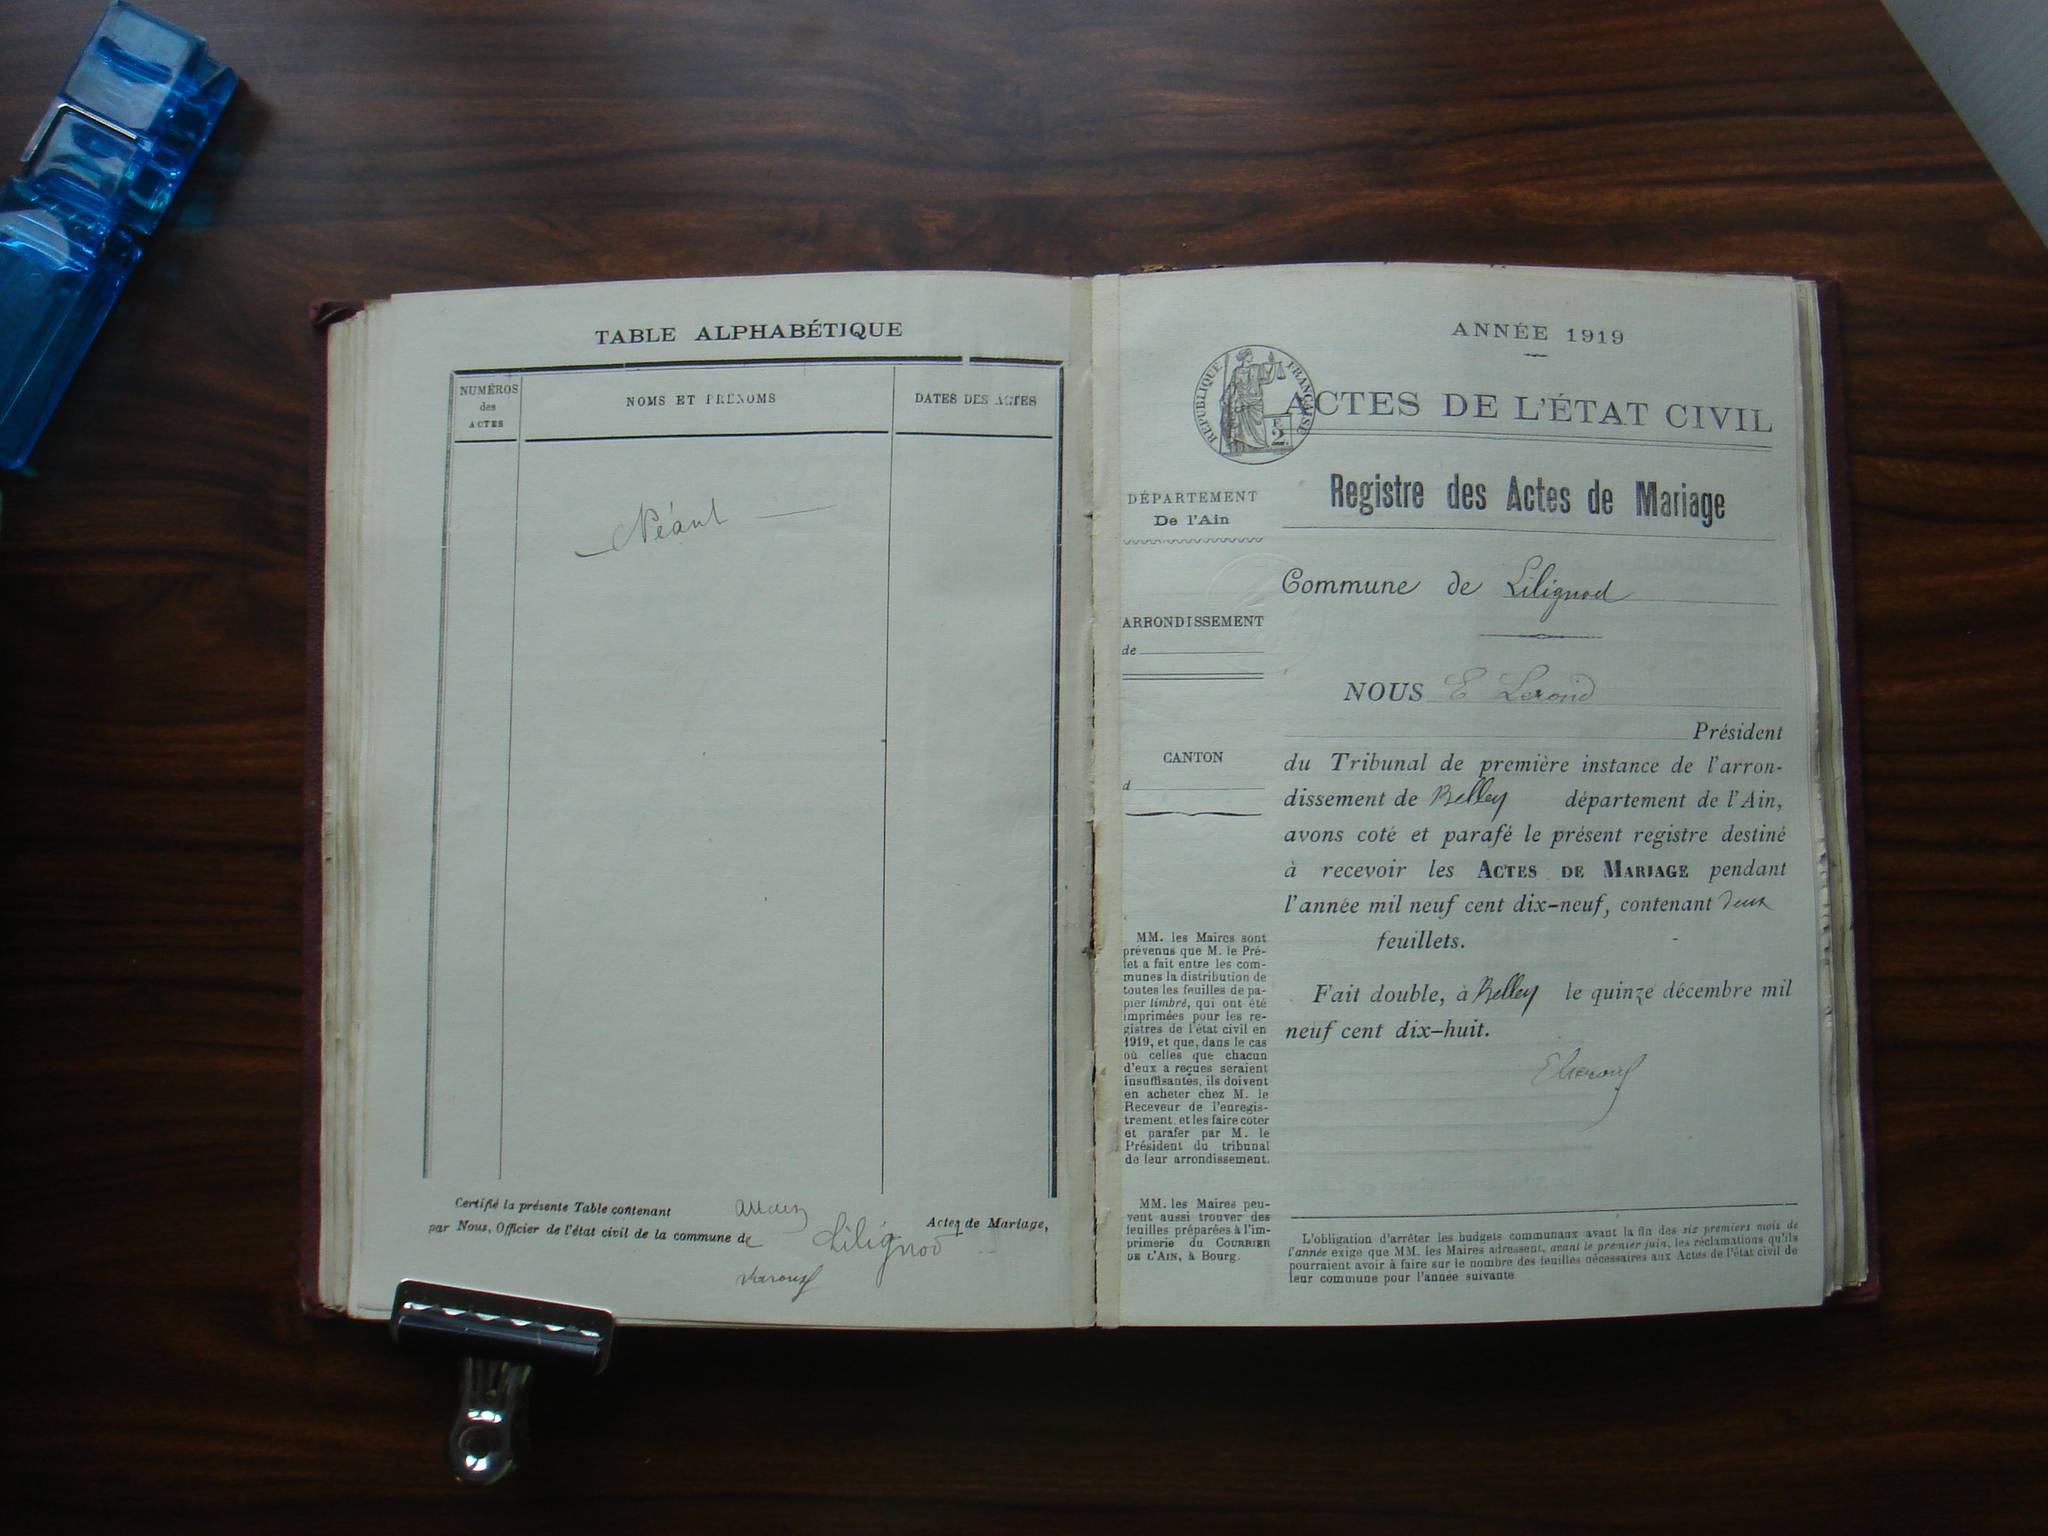 TABLE ALPHABÉTIQUE
NUMÉROS
des
ACTES
NOMS ET PRÉNOMS
DATES DES ACTES
Néant
Certifié la présente Table contenant aucun Actes de Mariage,
par Nous, Officier de l'état civil de la commune de Lilignod
ANNÉE 1919
RÉPUBLIQUE FRANÇAISE
2
ACTES DE L'ÉTAT CIVIL
Registre des Actes de Mariage
DÉPARTEMENT
De l'Ain
ARRONDISSEMENT
de
CANTON
d
MM. les Maires sont
prévenus que M. le Pré-
fet a fait entre les com-
munes la distribution de
toutes les feuilles de pa-
pier timbré, qui ont été
imprimées pour les re-
gistres de l'état civil en
1919, et que, dans le cas
où celles que chacun
d'eux a reçues seraient
insuffisantes, ils doivent
en acheter chez M. le
Receveur de l'enregis-
trement et les faire coter
et parafer par M. le
Président du tribunal
de leur arrondissement.
MM. les Maires peu-
vent aussi trouver des
feuilles préparées à l'im-
primerie du COURRIER
DE L'AIN, à Bourg.
Commune de Lilignod
NOUS E Lerond
Président
du Tribunal de première instance de l'arron-
dissement de Belley département de l'Ain,
avons coté et parafé le présent registre destiné
à recevoir les ACTES DE MARIAGE pendant
l'année mil neuf cent dix-neuf, contenant deux
feuillets.
Fait double, à Belley le quinze décembre mil
neuf cent dix-huit.
L'obligation d'arrêter les budgets communaux avant la fin des six premiers mois de
l'année exige que MM. les Maires adressent, avant le premier juin, les réclamations qu'ils
pourraient avoir à faire sur le nombre des feuilles nécessaires aux Actes de l'état civil de
leur commune pour l'année suivante